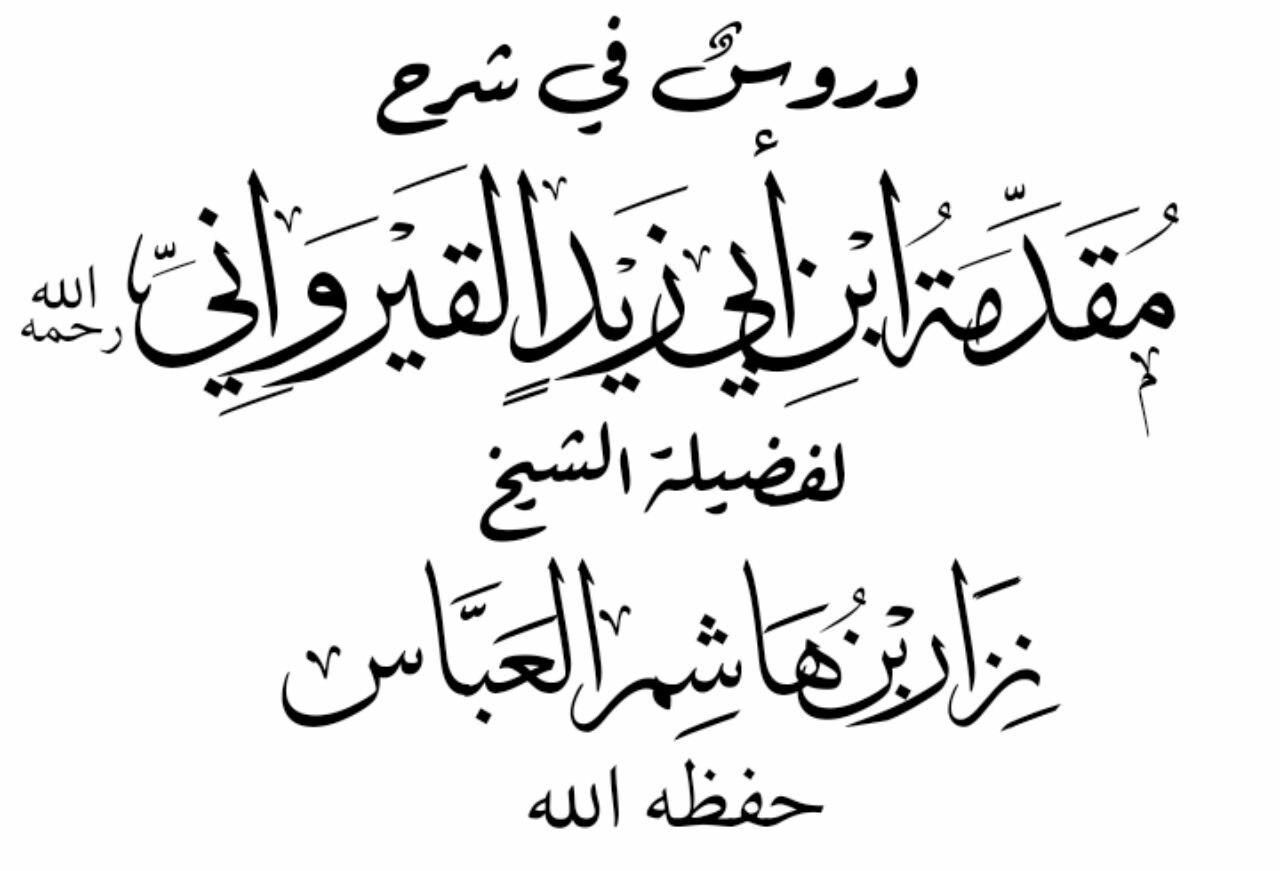 دروسٌ في شرح
مُقَدِّمَةُ ابْنِ أَبِي زَيْدٍ القَيْرَوَانِيِّ رحمه الله
لفضيلة الشيخ
نِزَار بْنُ هَاشِم العَبَّاس
حفظه الله